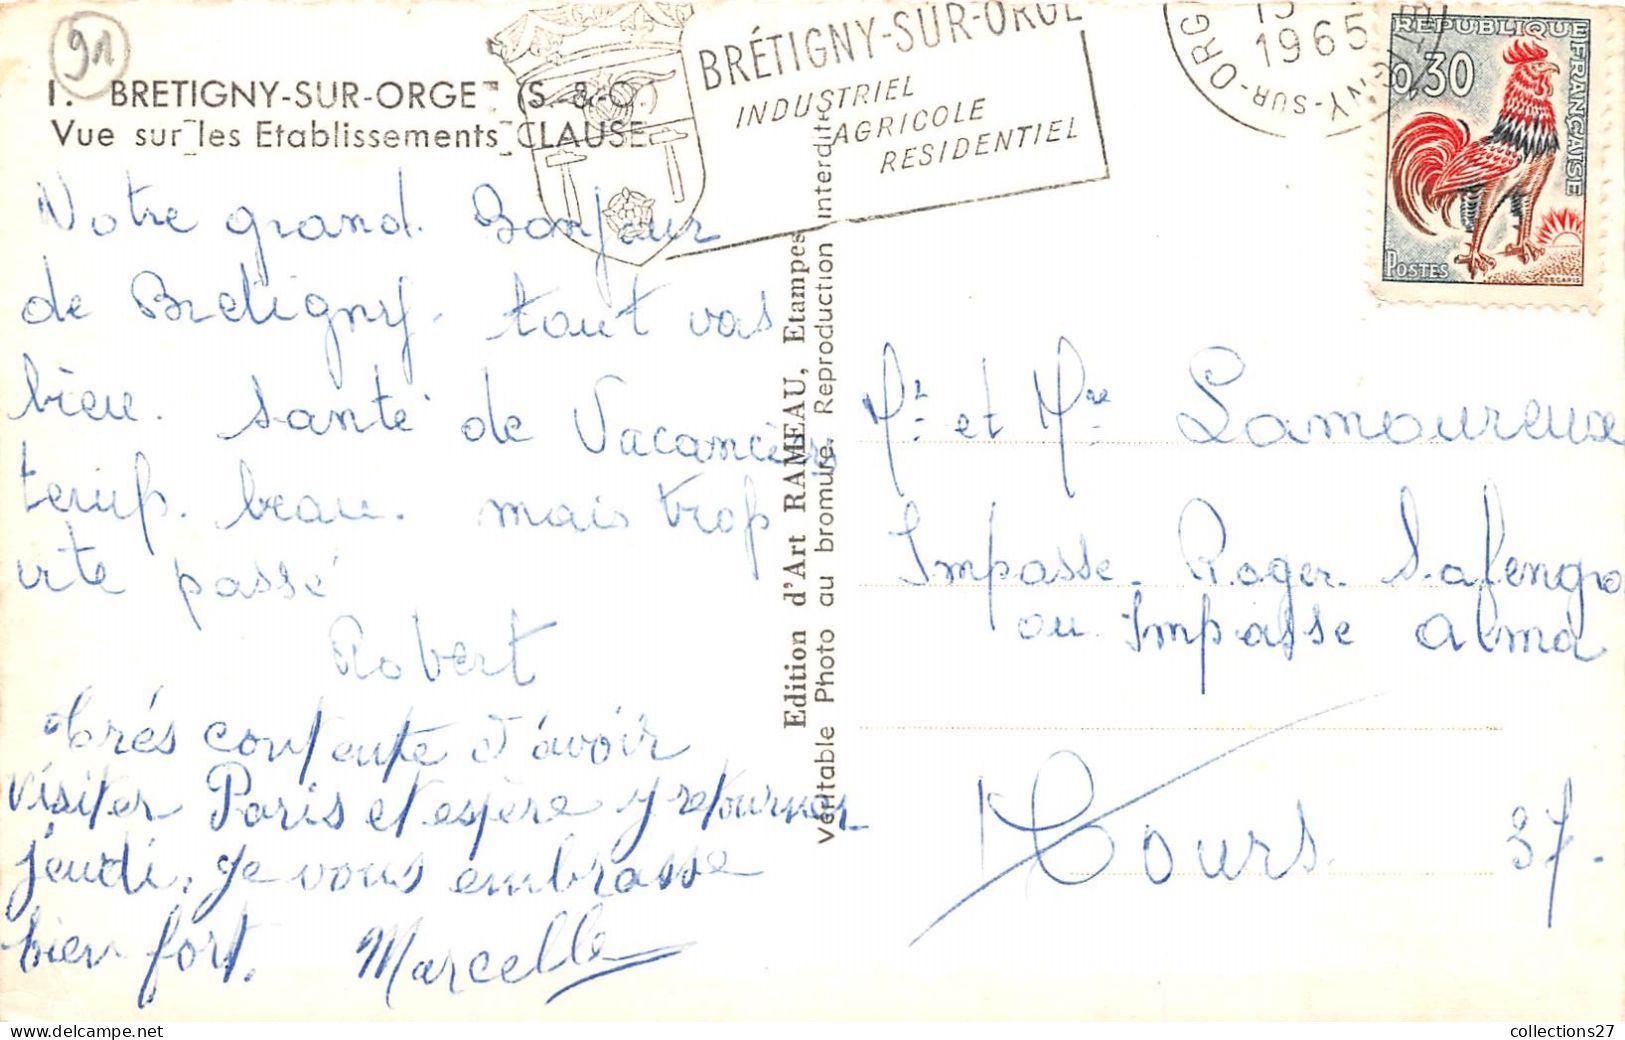 91
1. BRETIGNY-SUR-ORGE (S.-&-O.)
Vue sur les Etablissements CLAUSE
BRÉTIGNY-SUR-ORGE
INDUSTRIEL
AGRICOLE
RESIDENTIEL
1965
REPUBLIQUE FRANÇAISE
0,30
POSTES
DECARIS
Notre grand. Bonjour
de Bretigny. tout vas
bien. Santé de Vacanciers
temp. beau. mais trop
vite passé
Robert
très contente d'avoir
visiter Paris et espère y retourner
jeudi, Je vous embrasse
bien fort. Marcelle
Edition d'Art RAMEAU, Etampes
Véritable Photo au bromure. Reproduction interdite
Mr et Mme Lamoureux
Impasse. Roger Salengro
ou Impasse Alma
Tours. 37.
collections27